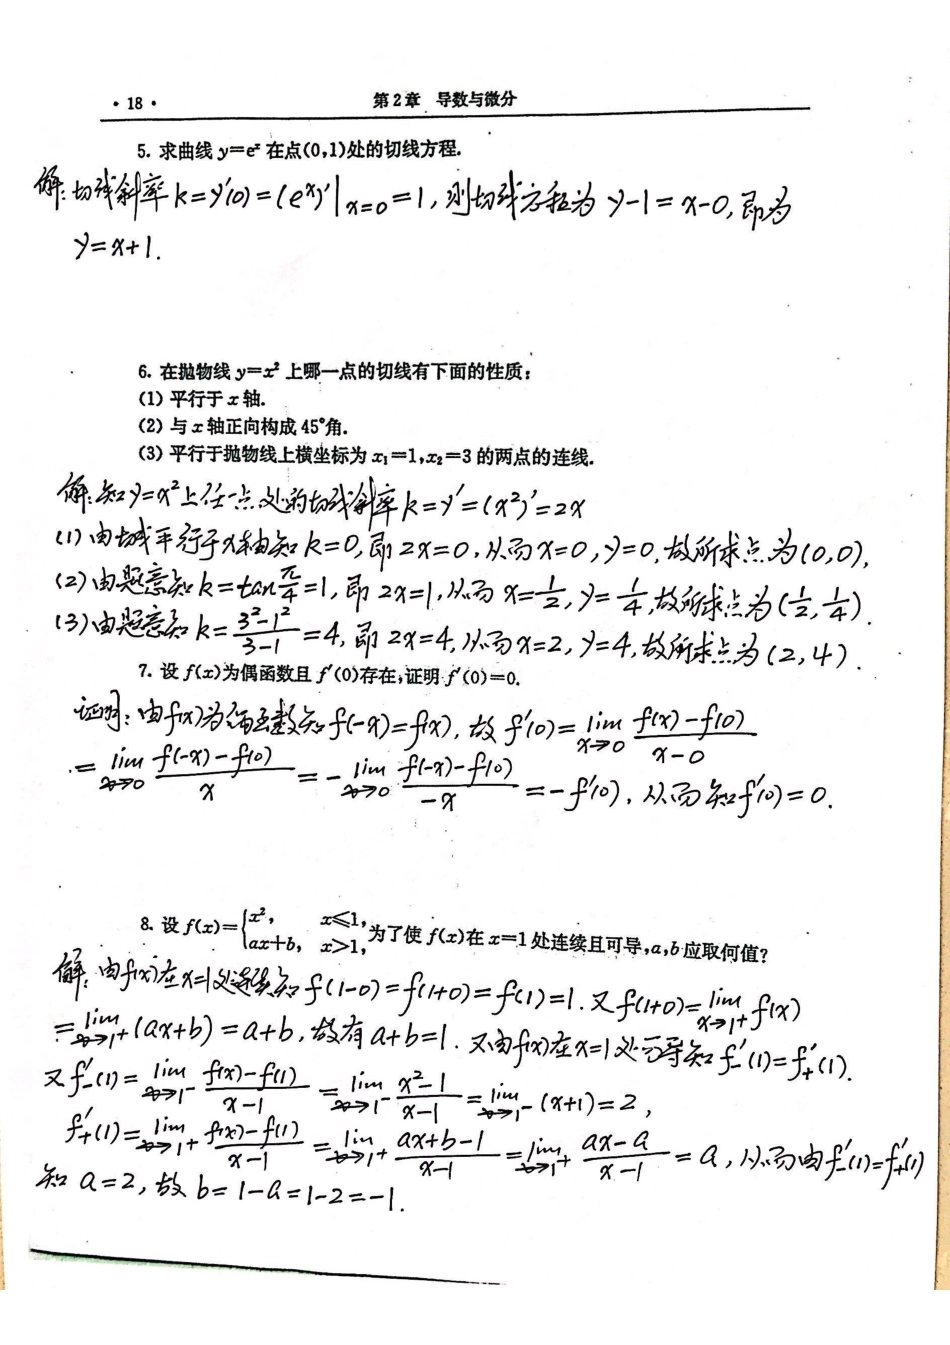 ·18·
第2章 导数与微分
5. 求曲线 y=eˣ 在点(0,1)处的切线方程.
解: 切线斜率 k=y'(0)=(eˣ)'|ₓ₌₀=1, 则切线方程为 y-1=x-0, 即为
y=x+1.
6. 在抛物线 y=x² 上哪一点的切线有下面的性质:
(1) 平行于 x 轴.
(2) 与 x 轴正向构成 45°角.
(3) 平行于抛物线上横坐标为 x₁=1,x₂=3 的两点的连线.
解: 知 y=x² 上任一点处的切线斜率 k=y'=(x²)'=2x
(1) 由切线平行于x轴知 k=0, 即 2x=0, 从而 x=0, y=0, 故所求点为(0,0),
(2) 由题意知 k=tan π/4=1, 即 2x=1, 从而 x=1/2, y=1/4, 故所求点为(1/2, 1/4).
(3) 由题意知 k=(3²-1²)/(3-1)=4, 即 2x=4, 从而 x=2, y=4, 故所求点为(2,4).
7. 设 f(x)为偶函数且 f'(0)存在,证明 f'(0)=0.
证明: 由f(x)为偶函数知 f(-x)=f(x), 故 f'(0)=lim x→0 (f(x)-f(0))/(x-0)
=lim x→0 (f(-x)-f(0))/x=-lim x→0 (f(-x)-f(0))/(-x)=-f'(0), 从而知f'(0)=0.
8. 设 f(x)={x², x≤1, ax+b, x>1, 为了使 f(x)在 x=1 处连续且可导,a,b 应取何值?
解: 由f(x)在x=1处连续知 f(1-0)=f(1+0)=f(1)=1. 又 f(1+0)=lim x→1⁺ f(x)
=lim x→1⁺ (ax+b)=a+b, 故有 a+b=1. 又由f(x)在x=1处可导知 f'₋(1)=f'₊(1).
又 f'₋(1)=lim x→1⁻ (f(x)-f(1))/(x-1)=lim x→1⁻ (x²-1)/(x-1)=lim x→1⁻ (x+1)=2,
f'₊(1)=lim x→1⁺ (f(x)-f(1))/(x-1)=lim x→1⁺ (ax+b-1)/(x-1)=lim x→1⁺ (ax-a)/(x-1)=a, 从而由f'₋(1)=f'₊(1)
知 a=2, 故 b=1-a=1-2=-1.